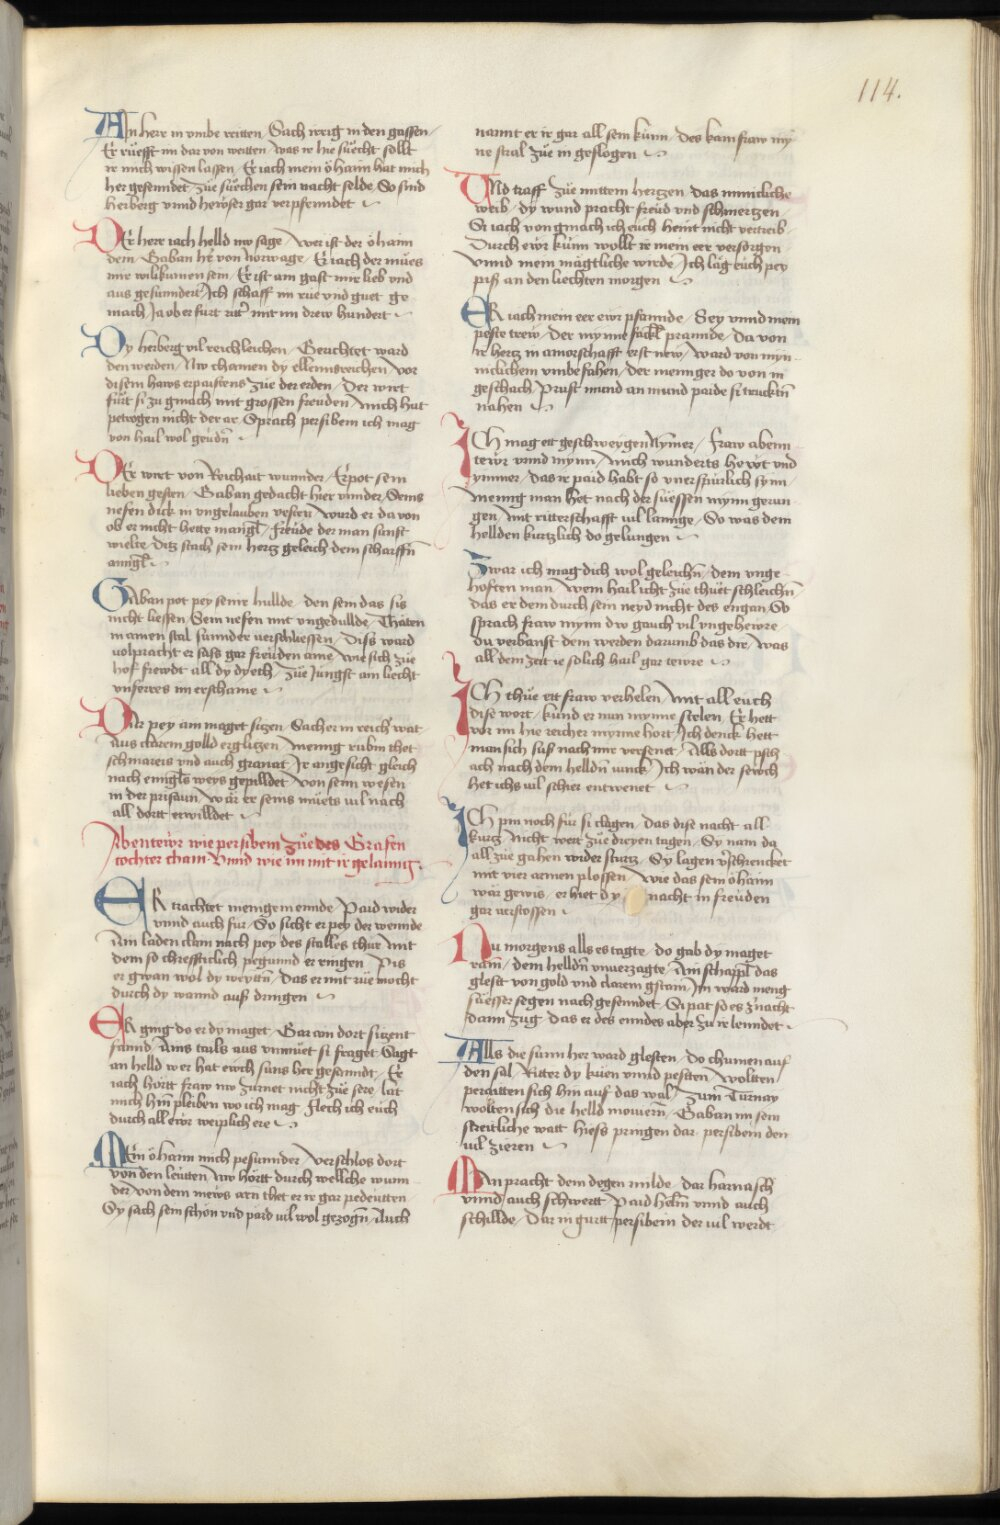 114.
Ain herr in vmbe reitten / Sach irrig in den gassen /
Er rüefft im dar von weitten / was ir hie süecht sollt
ir mich wissen lassen / Er iach mein öhaim hat mich
her gesenndet / züe süechen sein nacht selde / So sind
herberg vnnd hewser gar verpfenndet
Der herr iach helld nw sage / wer ist der öhaim
dein / Gaban her von Norwage / Er iach der mües
mir wilkumen sein / Er ist am gast mir lieb vnd
aus gesunndert / Ich schaff im rüe vnd guet ge
mach / Ja ob er fürt ritter mit im drew hundert
Dy herberg vil reichleichen / Gerichtet ward
den werden / Nw chamen dy ellennsreichen / vor
disem haws erpaisstens züe der erden / Der wirt
fürt si zu gmach mit grossen freuden / mich hat
petrogen nicht der ar / Sprach persibein ich mag
von hail wol geüdn
Der wirt von Reichait wunnder / Erpot sein
lieben gesten / Gaban gedacht hier vnnder / Seins
nefen dick in vngelauben vesten / wurd er da von
ob er nicht hette mangl / freude der man sunst
wielte / ditz stach sein hertz geleich dem scharffn
anngl
Gaban pot pey seinr hullde / den sein das sis
nicht liessen / Sein nefen mit vngedullde / Thäten
in ainen stal sunnder verschliessen / Diss ward
volpracht er sass gar freuden aine / wie sich züe
hof frewdt all dy dyeth / züe Jungst am liecht
vnferres im erschaine
Dar pey am maget sitzen / Sach er in reich wat
Aus clarem golld erglitzen / Menig rubin thet
schmareis vnd auch granat / Ir angesicht gleich
nach enngls weys gepilldet / von seim wesen
in der prisaun / wär er seins müets vil nach
all dortt erwilldet
Abentewr wie persibein züe des Grafen
tochter cham vnnd wie im mit ir gelanng.
Er trachtet menigem ennde / Paid wider
vnnd auch für / So sicht er pey der wennde
Am laden clain nach pey des stalles thür / Mit
dem so chreffticlich pegunnd er ringen / Pis
er gwan wol dy weyttn / das er mit rüe mocht
durch dy wannd auss dringen
Er ging do er dy maget / Gar ain dort sitzent
fannd / Ains tails aus vnmüet si fraget / Sagt
an helld wer hat ewch süns her gesanndt / Er
iach hörtt fraw nw zürnet nicht züe sere / lat
mich hinn pleiben wo ich mag / flech ich euch
durch all ewr weiplich ere
Mein öhaim mich pesunnder / verschlos dort
von den leutten / Nw hörtt durch wellche wunn
der von dem mews arn thet er ir gar pedeutten
Sy sach sein schön vnd pard vil wol gezogn / Auch
nannt er ir gar all sein künn / des kam fraw my
ne stral züe in geflogen
Vnd traff züe mittem hertzen / das minicliche
weib / dy wund pracht freüd vnd schmertzen
Si iach von gmach ich euch heint nicht vertreib
Durch ewr künn wollt ir mein eer versorgen
vnnd mein mägtliche wirde / Ich läg euch pey
piss an den liechten morgen
Er iach mein eer ewr pfannde / Sey vnnd mein
peste trew / der mynne fackl prannde / da von
ir hertz in amorschafft erst new / ward von myn
niclichem vmbefahen / der meniger do von in
geschach / Prust mund an mund paide si trucktn
nahen
Ich mag ett geschweygen Nymer / fraw abenn
tewr vnnd mynn / mich wunderts hewt vnd
ymmer / das ir paid habt so vnerspürlich synn
Menig man het nach der süessen mynn gerun
gen / mit ritterschafft vil lannge / So was dem
hellden kurtzlich do gelungen
Zwar ich mag dich wol geleichn / dem vnge
hoften man / wem hail icht züe thuet schleichn
das er dem durch sein neyd nicht des engan / So
sprach fraw mynn dw gauch vil vngehewre
du verbanst dem werden darumb das dir / was
all dein zeit ie solich hail gar tewre
Ich thüe ett fraw verhelen / mit all euch
dise wort / kund er nun mynne stelen / Er hett
vor im hie reicher mynne hort / Ich denck hett
man sich süs nach mir versennt / Alls dortt psitz
ach nach dem helldn iunck / Ich wän der serich
het ichs vil schier entwenet
Ich pin noch für si clagen / das dise nacht all
kurtz / Nicht wert züe dreyen tagen / Sy nam da
all züe gahen wider sturtz / Sy lagen verschrencket
mit vier armen plossen / wie das sein öhaim
wär gewis / er hiet dy nacht in freüden
gar verstossen
Nu morgens alls es tagte / do gab dy maget
rain / dem helldn vnuerzagte / Ain schappl das
glestt von gold vnd clarem gstain / Im ward meng
süesser segen nach gesenndet / Si pat so es znacht
dann zug / das er des enndes aber zu ir lenndet
Alls die sunn her ward glesten / do chumen auf
den sal / Ritter dy küen vnnd pestten / wollten
peraitten sich hin auf das wal / zum Turnay
wolten sich die helld mouiern / Gaban im sein
streitliche watt / hiess pringen dar / persibein den
vil zieren
Man pracht dem degen milde / dar harnasch
vnnd auch schwertt / Paid helm vnnd auch
schillde / Dar in gurtt persibein der vil werdt